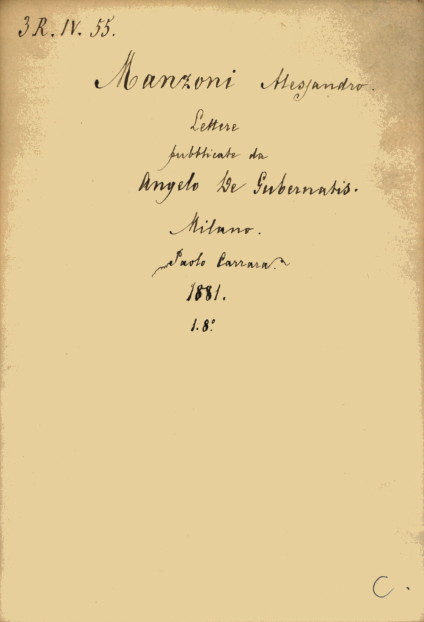 3 R. IV. 55.
Manzoni Alessandro.
Lettere
pubblicate da
Angelo De Gubernatis.
Milano.
Paolo Carrara.
1881.
1. 8º
C.